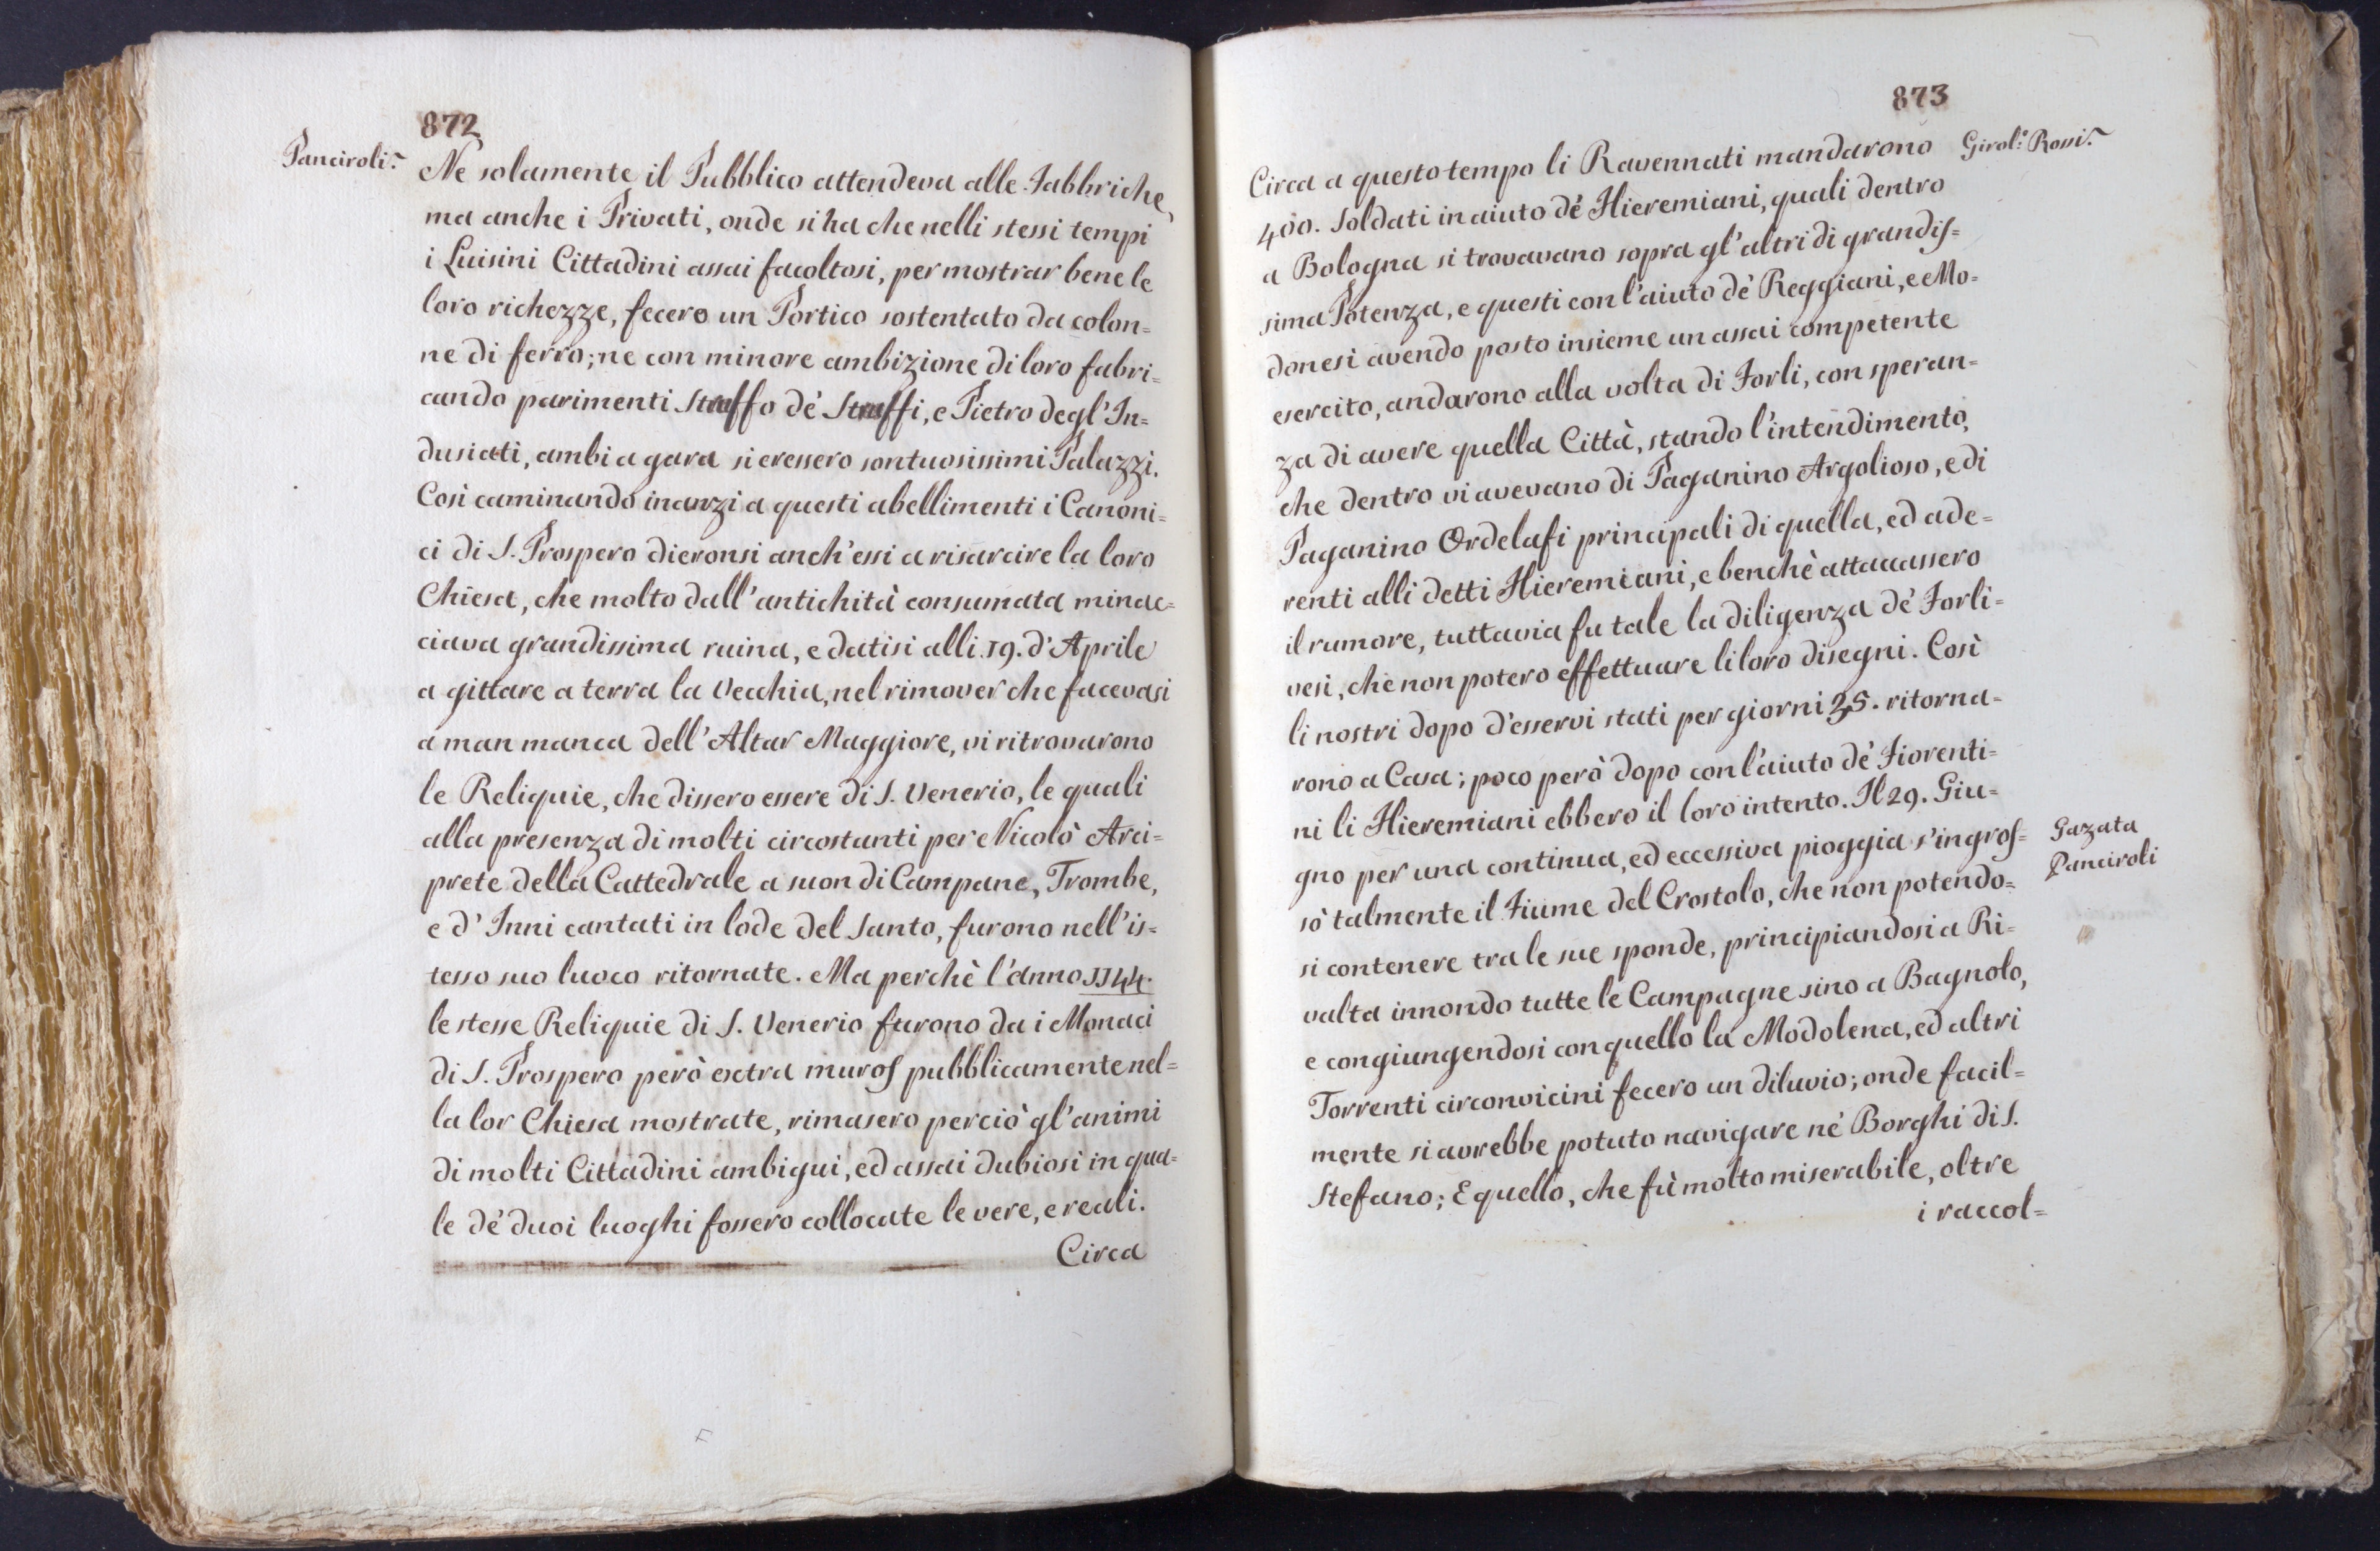 872
Panciroli.
Ne solamente il Pubblico attendeva alle Fabbriche,
ma anche i Privati, onde si ha che nelli stessi tempi
i Luisini Cittadini assai facoltosi, per mostrar bene le
loro richezze, fecero un Portico sostentato da colon=
ne di ferro; ne con minore ambizione di loro fabri=
cando parimenti Struffo de' Struffi, e Pietro degl' In=
dusiati, ambi a gara si eressero sontuosissimi Palazzi.
Così caminando inanzi a questi abellimenti i Canoni=
ci di S. Prospero dieronsi anch' essi a risarcire la loro
Chiesa, che molto dall' antichità consumata minac=
ciava grandissima ruina, e datisi alli 19. d' Aprile
a gittare a terra la Vecchia, nel rimover che facevasi
a man manca dell' Altar Maggiore, vi ritrovarono
le Reliquie, che dissero essere di S. Venerio, le quali
alla presenza di molti circostanti per Nicolò Arci=
prete della Cattedrale a suon di Campane, Trombe,
e d' Inni cantati in lode del Santo, furono nell' is=
tesso suo luoco ritornate. Ma perchè l' anno 1144.
le stesse Reliquie di S. Venerio furono da i Monaci
di S. Prospero però extra muros pubblicamente nel=
la lor Chiesa mostrate, rimasero perciò gl' animi
di molti Cittadini ambigui, ed assai dubiosi in qua=
le de' duoi luoghi fossero collocate le vere, e reali.
Circa
873
Girol.º Rossi.
Circa a questo tempo li Ravennati mandarono
400. soldati in aiuto de' Hieremiani, quali dentro
a Bologna si trovavano sopra gl' altri di grandis=
sima Potenza, e questi con l' aiuto de' Reggiani, e Mo=
donesi avendo posto insieme un assai competente
esercito, andarono alla volta di Forli, con speran=
za di avere quella Città, stando l' intendimento,
che dentro vi avevano di Paganino Argolioso, e di
Paganino Ordelafi principali di quella, ed ade=
renti alli detti Hieremiani, e benchè attaccassero
il rumore, tuttavia fu tale la diligenza de' Forli=
vesi, che non potero effettuare li loro disegni. Così
li nostri dopo d' esservi stati per giorni 25. ritorna=
rono a Casa; poco però dopo con l' aiuto de' Fiorenti=
ni li Hieremiani ebbero il loro intento. Il 29. Giu=
gno per una continua, ed eccessiva pioggia s' ingros=
Gazata
Panciroli
sò talmente il Fiume del Crostolo, che non potendo=
si contenere tra le sue sponde, principiandosi a Ri=
valta innondo tutte le Campagne sino a Bagnolo,
e congiungendosi con quello la Modolena, ed altri
Torrenti circonvicini fecero un diluvio; onde facil=
mente si avrebbe potuto navigare ne' Borghi di S.
Stefano; E quello, che fù molto miserabile, oltre
i raccol=